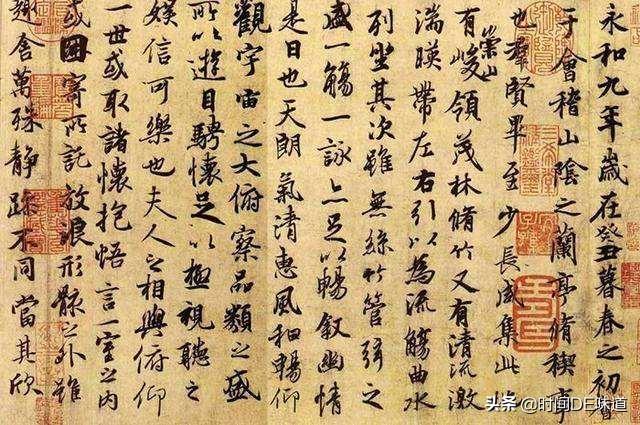 永和九年歲在癸丑暮春之初會
于會稽山陰之蘭亭脩稧事
也羣賢畢至少長咸集此地
有崇山峻領茂林脩竹又有清流激
湍暎帶左右引以為流觴曲水
列坐其次雖無絲竹管弦之
盛一觴一詠亦足以暢敘幽情
是日也天朗氣清惠風和暢仰
觀宇宙之大俯察品類之盛
所以遊目騁懷足以極視聽之
娛信可樂也夫人之相與俯仰
一世或取諸懷抱悟言一室之內
或因寄所託放浪形骸之外雖
趣舍萬殊靜躁不同當其欣
头条 @时间DE味道